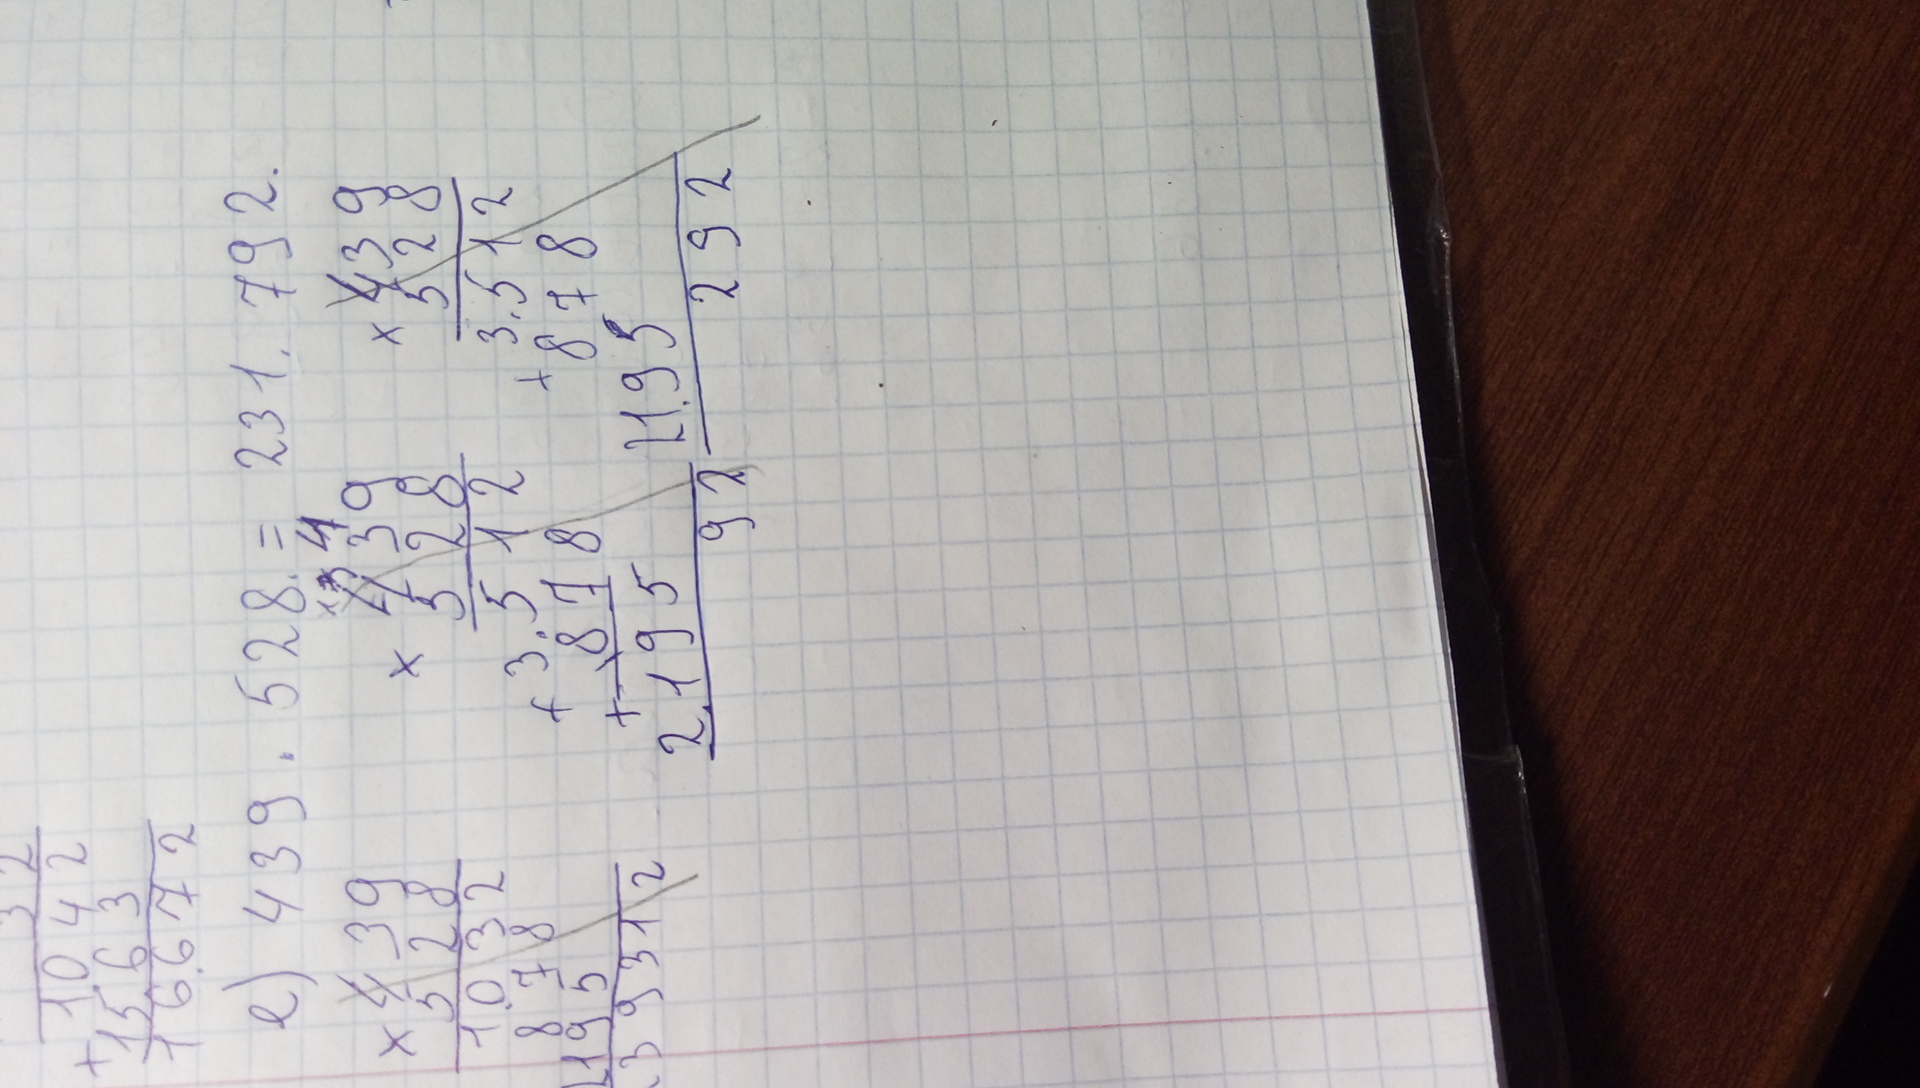 3 2
1042
+ 1563
16.672
e) 439 . 528 = 231.792.
× 439
528
10.032
878
2195
3 9 3 1 2
× 439
528
3.512
+ 878
+ 2.195
92
× 439
528
3.512
+ 878
2195
292